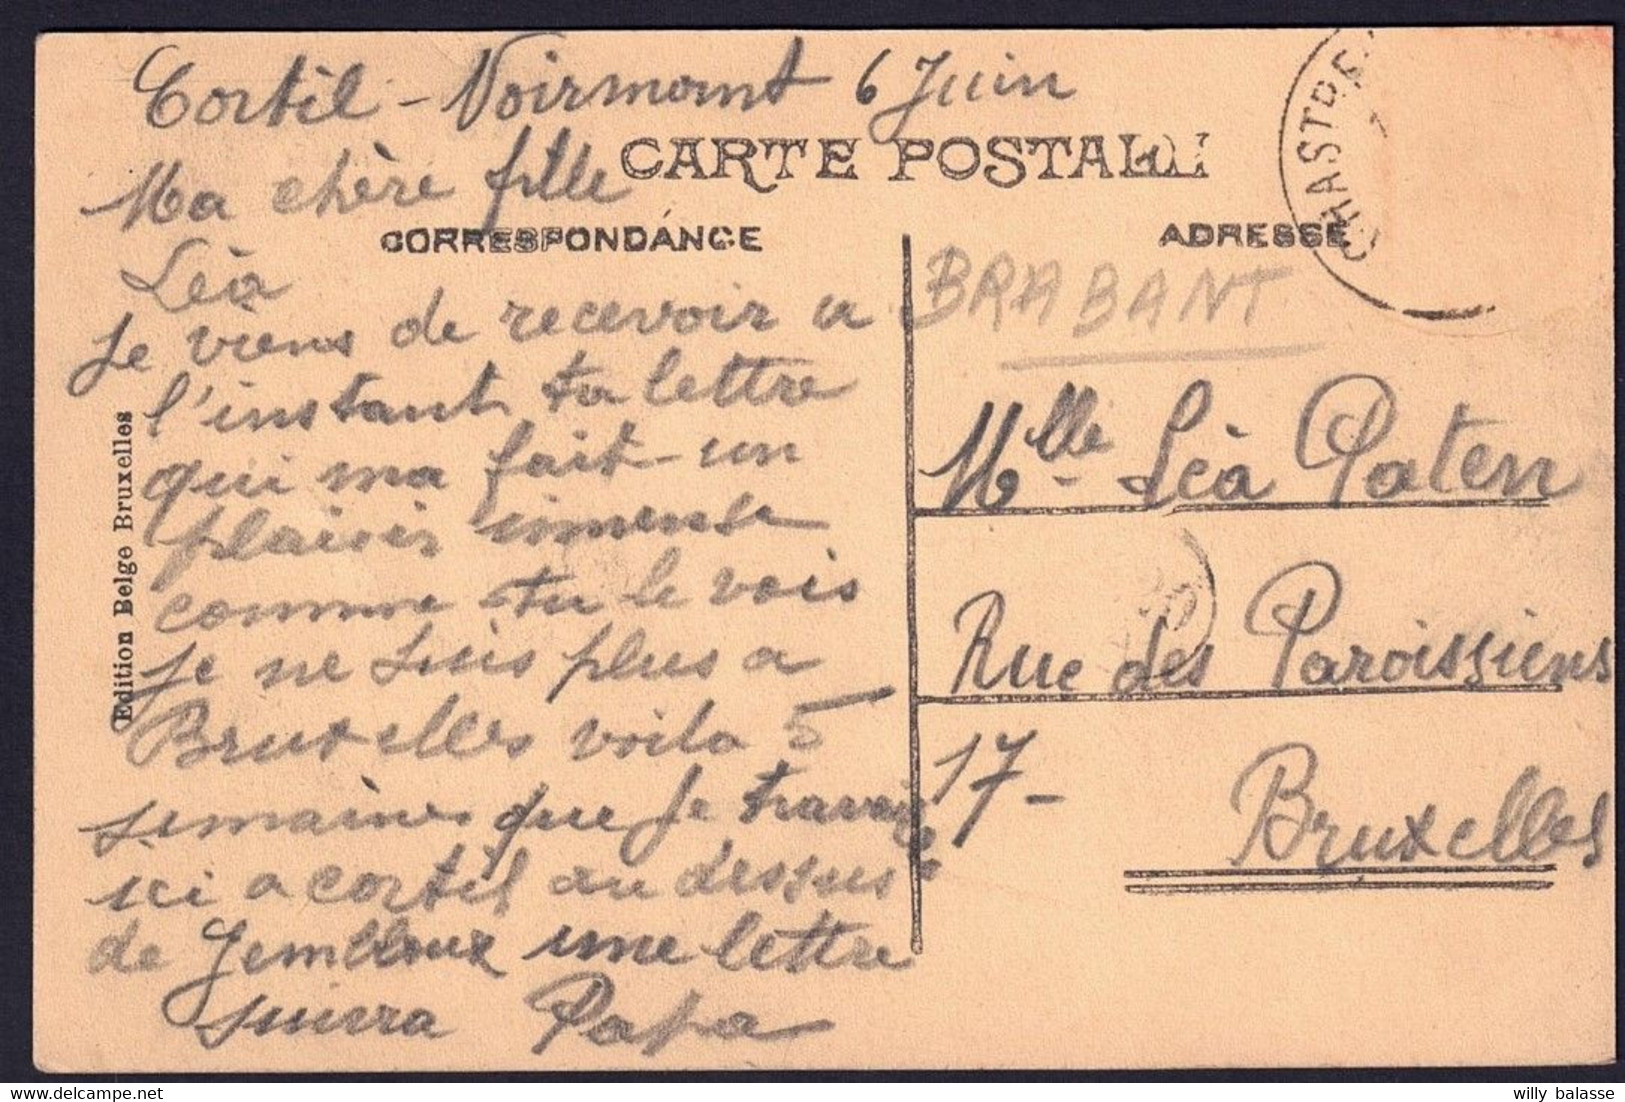 Cortil - Noirmont 6 Juin
CARTE POSTALE
Ma chère fille
CORRESPONDANCE
Léà
je viens de recevoir a
l'instant ta lettre
qui ma fait un
plaisir immense
comme tu le vois
je ne suis plus a
Bruxelles voila 5
semaines que je travaille
ici a cortil au dessus
de Jembloux une lettre
suivra Papa
Edition Belge Bruxelles
ADRESSE
CHASTRE
BRABANT
Mlle Léà Paten
Rue des Paroissiens
17-
Bruxelles
willy balasse